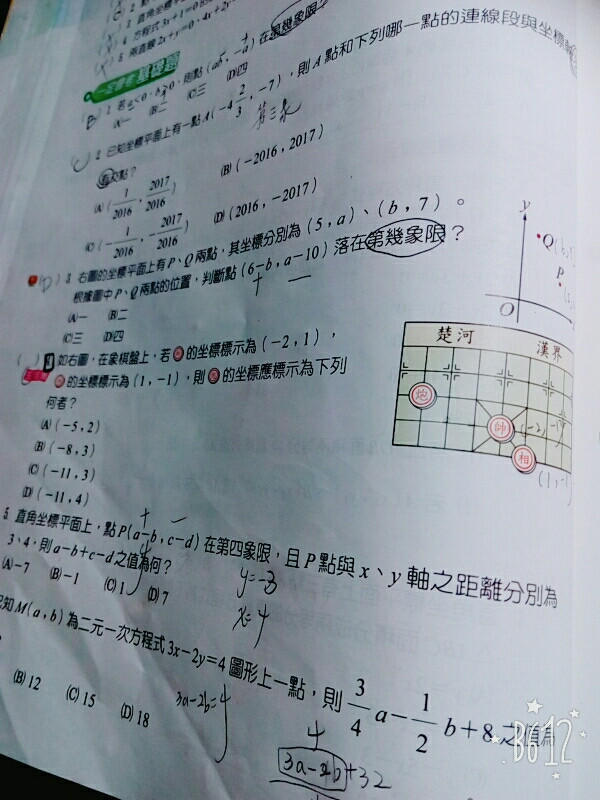 3 直角坐標平
4 方程式3x+1=0
5 兩直線2x+y=0、4x+2y
基礎題
(B) 1 若a<0,b>0,則點(ab,-a)在第幾象限
(A)一 (B)二 (C)三 (D)四
第三象
2 已知坐標平面上有一點A(-4 2/3,-7),則A點和下列哪一點的連線段與坐標軸
有交點?
(A)(1/2016,2017/2016) (B)(-2016,2017)
(C)(-1/2016,-2017/2016) (D)(2016,-2017)
(D) 3 右圖的坐標平面上有P、Q兩點,其坐標分別為(5,a)、(b,7)。
根據圖中P、Q兩點的位置,判斷點(6-b,a-10)落在第幾象限?
+ —
(A)一 (B)二
(C)三 (D)四
y
Q
P
O
( ) 4 如右圖,在象棋盤上,若 的坐標標示為(-2,1),
的坐標標示為(1,-1),則 的坐標應標示為下列
何者?
(A)(-5,2)
(B)(-8,3)
(C)(-11,3)
(D)(-11,4)
楚河 漢界
炮
帥 (-2,
相
(1,-1
+ —
5. 直角坐標平面上,點P(a-b,c-d)在第四象限,且P點與x、y軸之距離分別為
3、4,則a-b+c-d之值為何?
(A)-7 (B)-1 (C)1 (D)7
y=-3
x=4
知M(a,b)為二元一次方程式3x-2y=4圖形上一點,則3/4 a-1/2 b+8之值為
(B)12 (C)15 (D)18
3a-2b=4
4
3a-2b+32
B612